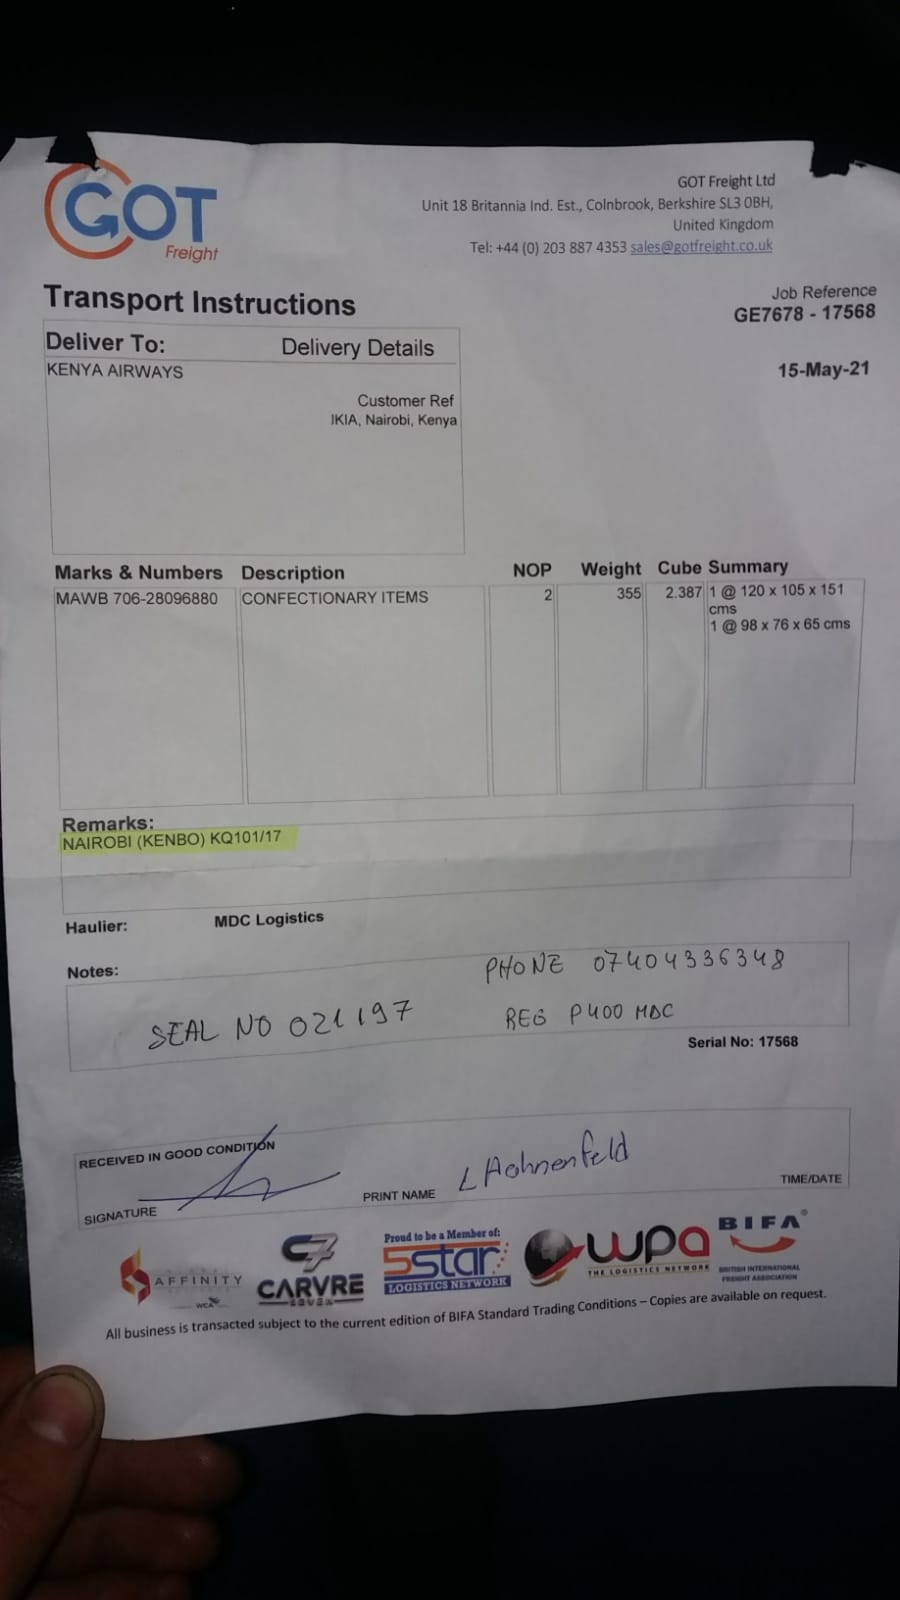 GOT
Freight
GOT Freight Ltd
Unit 18 Britannia Ind. Est., Colnbrook, Berkshire SL3 0BH,
United Kingdom
Tel: +44 (0) 203 887 4353 sales@gotfreight.co.uk
Transport Instructions
Job Reference
GE7678 - 17568
15-May-21
Deliver To: Delivery Details
KENYA AIRWAYS
Customer Ref
IKIA, Nairobi, Kenya
Marks & Numbers Description NOP Weight Cube Summary
MAWB 706-28096880 CONFECTIONARY ITEMS 2 355 2.387 1 @ 120 x 105 x 151
cms
1 @ 98 x 76 x 65 cms
Remarks:
NAIROBI (KENBO) KQ101/17
Haulier: MDC Logistics
Notes:
PHONE 07404336348
SEAL NO 021197
REG P400 MDC
Serial No: 17568
RECEIVED IN GOOD CONDITION
SIGNATURE
PRINT NAME
TIME/DATE
AFFINITY
WCA
C7
CARVRE
SEVEN
Proud to be a Member of:
5star
LOGISTICS NETWORK
wpa
THE LOGISTICS NETWORK
BIFA
BRITISH INTERNATIONAL
FREIGHT ASSOCIATION
All business is transacted subject to the current edition of BIFA Standard Trading Conditions – Copies are available on request.